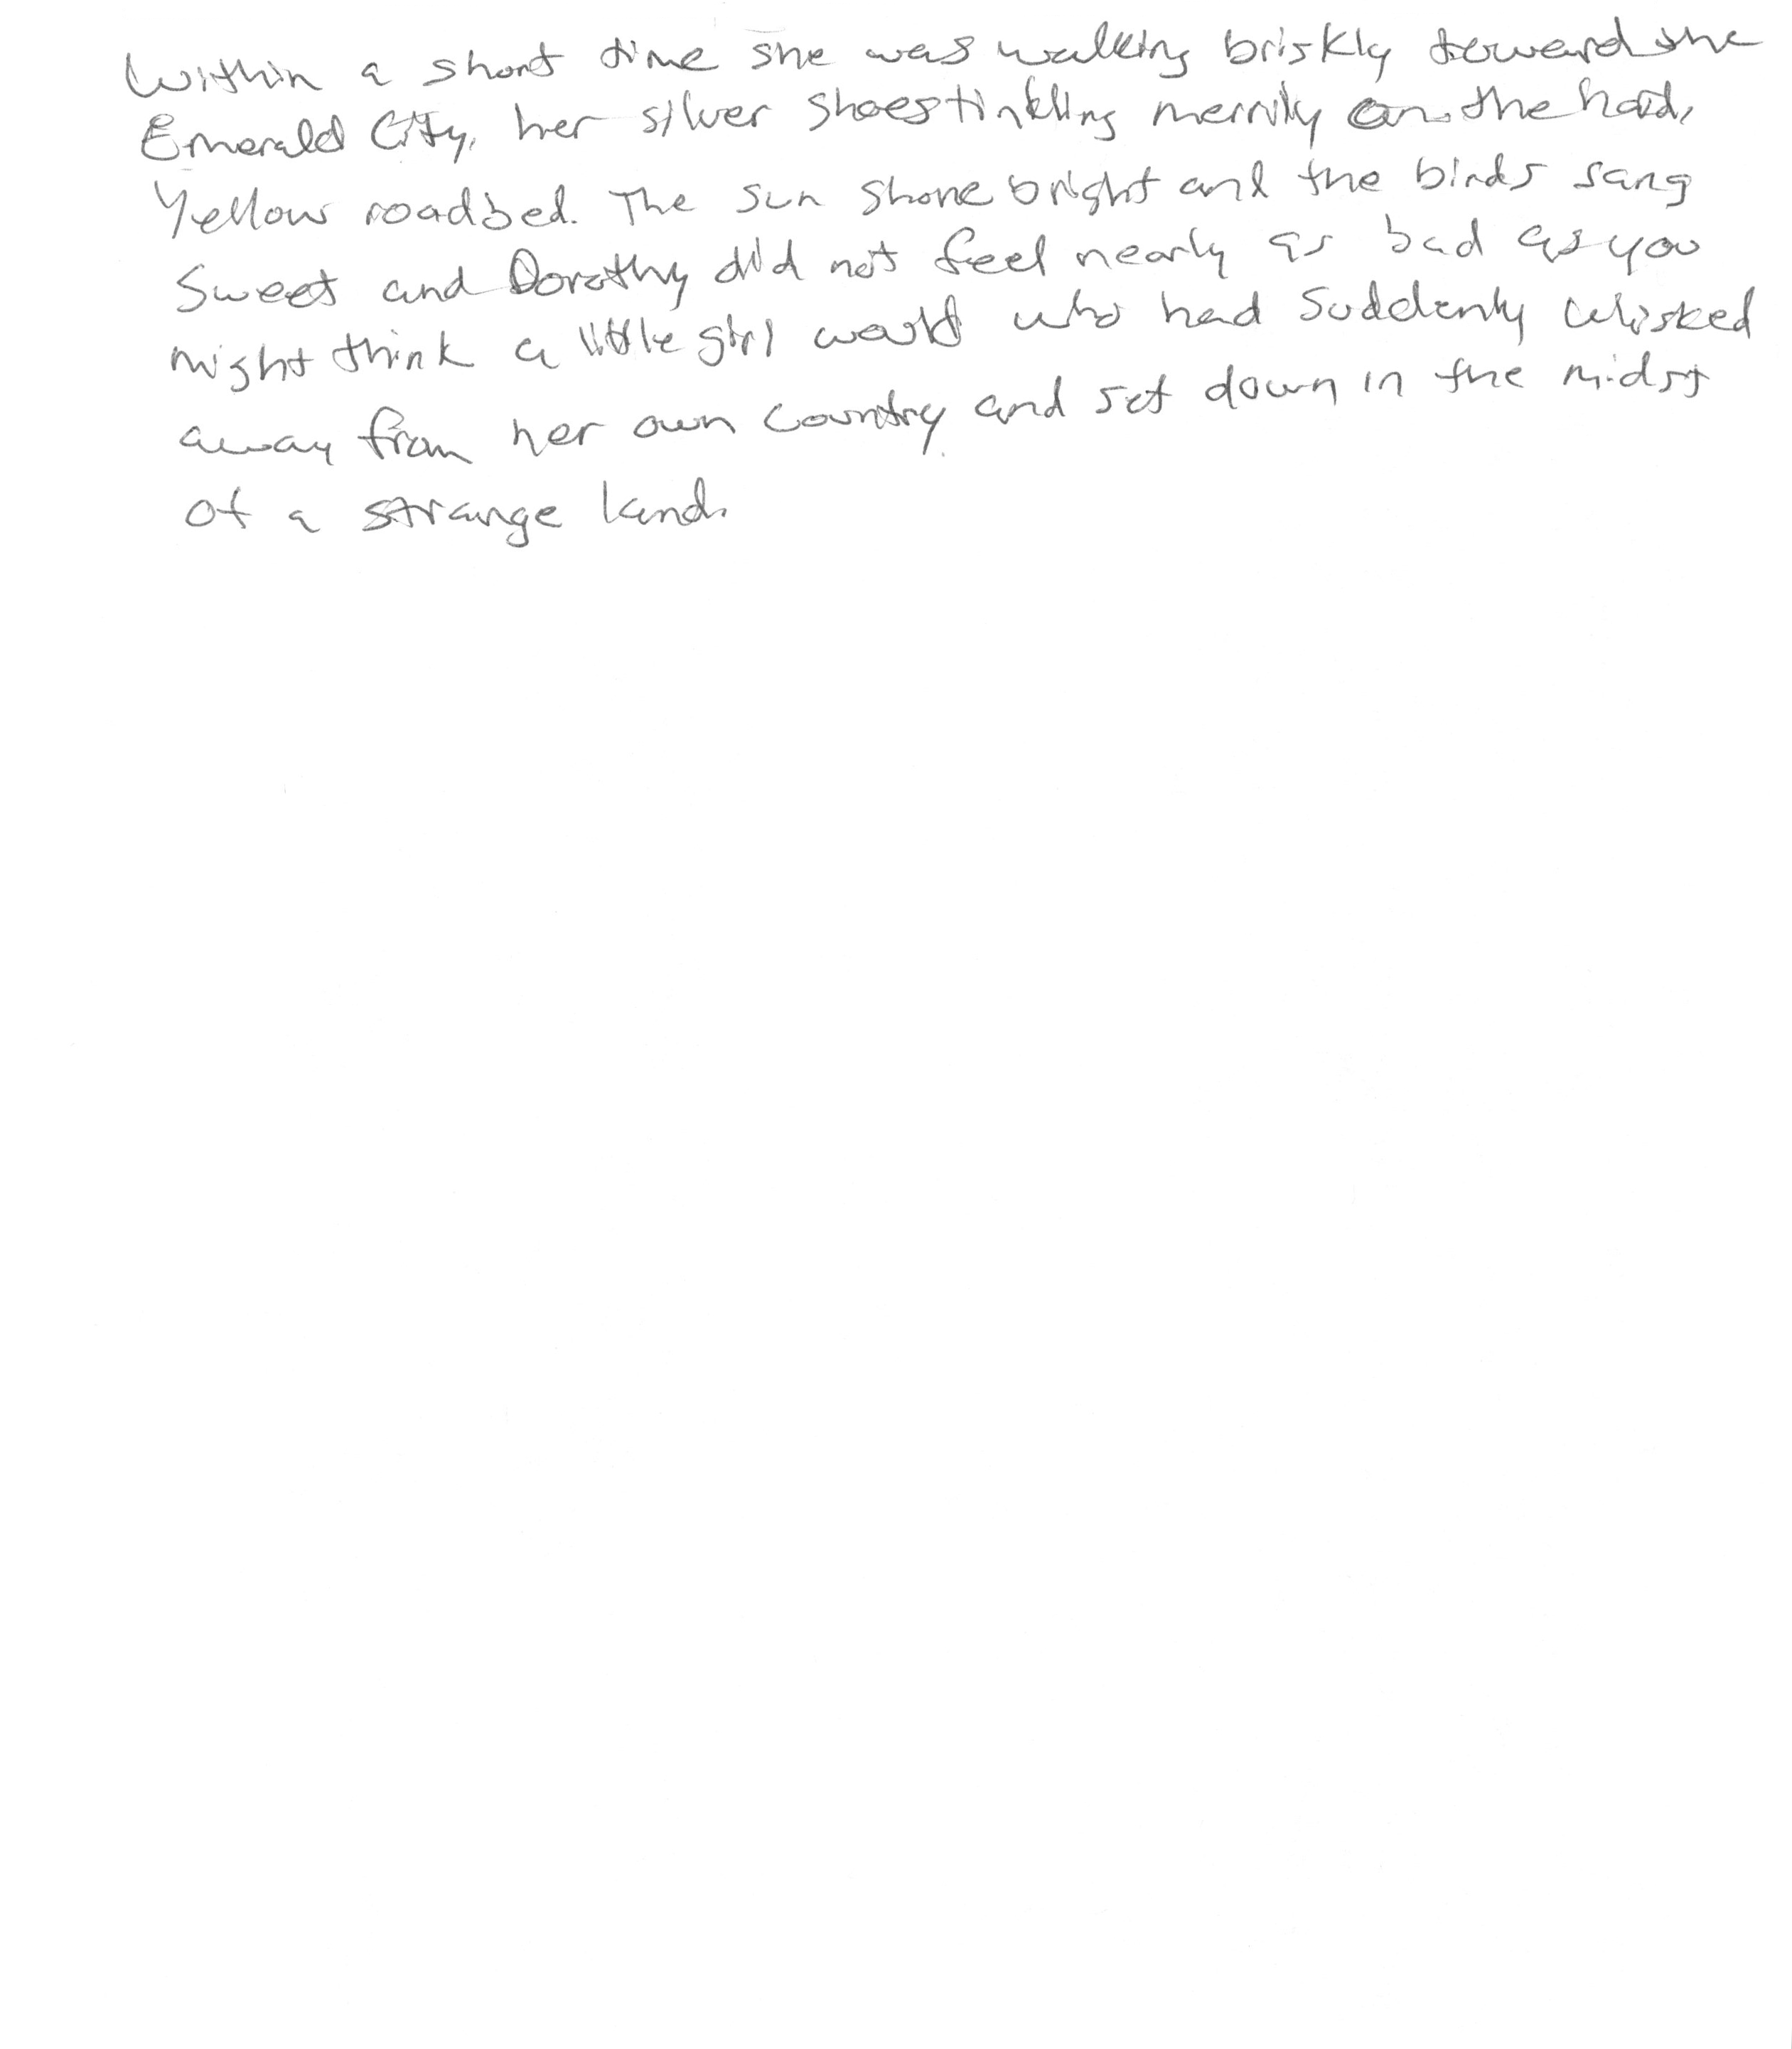 Within a short time she was walking briskly toward the
Emerald City, her silver shoes tinkling merrily on the hard,
Yellow roadbed. The sun shone bright and the birds sang
Sweet and Dorothy did not feel nearly as bad as you
might think a little girl would who had suddenly whisked
away from her own country and set down in the midst
of a strange land.